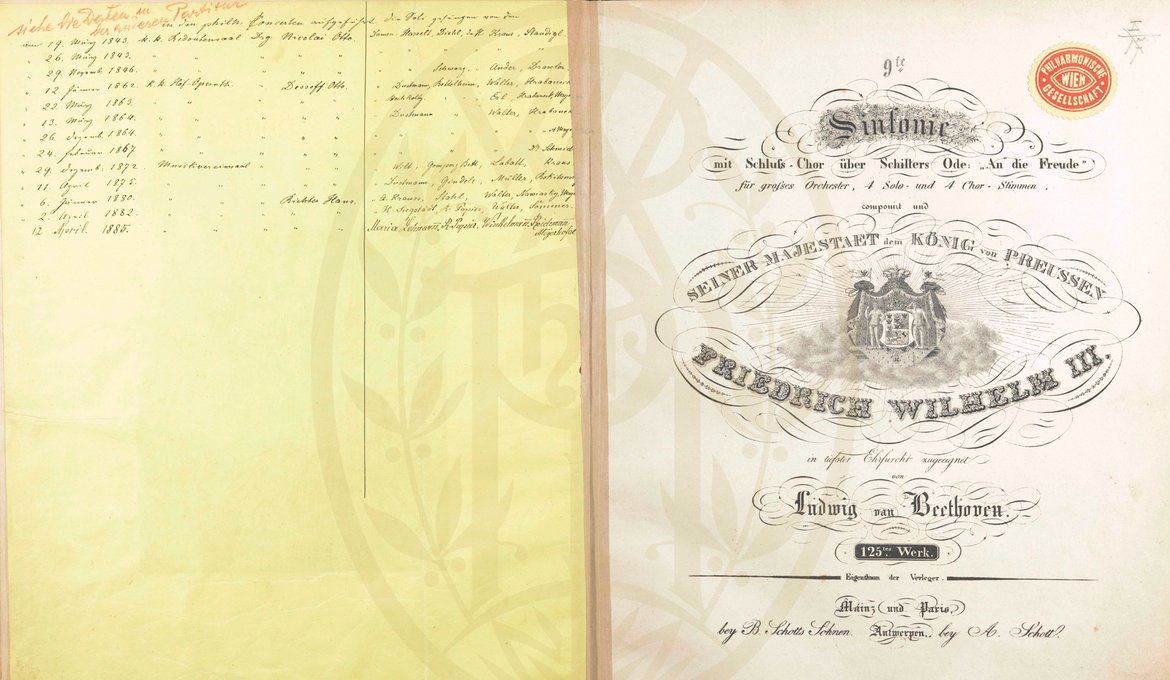 siehe die Daten in
der anderen Partitur
in den philh. Concerten aufgeführt die Soli gesungen von den
am 19. März 1843. k. k. Redoutensaal Drg Nicolai Otto. Hasselt, Diehl, Kraus, Staudigl.
" 26. März 1843. " " " " " "
" 29. Novemb. 1846. " " " " Schwarz, Ander, Draxler
" 12. Jänner 1862. k. k. Hof-Opernth. " Dessoff Otto. Dustmann, Bettelheim, Walter, Hrabanek
" 22. März 1863. " " " " Erl, Hrabanek, Mayer
" 13. März 1864. " " " " Dustmann " Walter, Hrabanek
" 26. Dezemb. 1864. " " " " " " "
" 24. Februar 1867 " " " " " " " Dr Schmid
" 29. Dezemb. 1872. Musikvereinssaal " " " Wilt, Gomperz Bett, Labatt, Kraus
" 11. April 1875. " " " " Dustmann, Gindele, Müller, Rokitansky
" 6. Jänner 1880. " " Richter Hans. A. Krauss, Stahl, Walter, Nawiasky, Mayer
" 2. April 1882. " " " " Siegstädt, R. Papier, Walter, Sommer.
12 April. 1885. " " " " Maria Lehmann, R. Papier, Winkelmann,
9te
Sinfonie
mit Schluſs-Chor über Schillers Ode: „An die Freude"
für groſses Orchester, 4 Solo- und 4 Chor-Stimmen,
componirt und
SEINER MAJESTAET dem KÖNIG von PREUSSEN
FRIEDRICH WILHELM III.
in tiefster Ehrfurcht zugeeignet
von
Ludwig van Beethoven.
125tes Werk.
Eigenthum der Verleger.
Mainz und Paris,
bey B. Schotts Söhnen. Antwerpen, bey A. Schott.
PHILHARMONISCHE
WIEN
GESELLSCHAFT